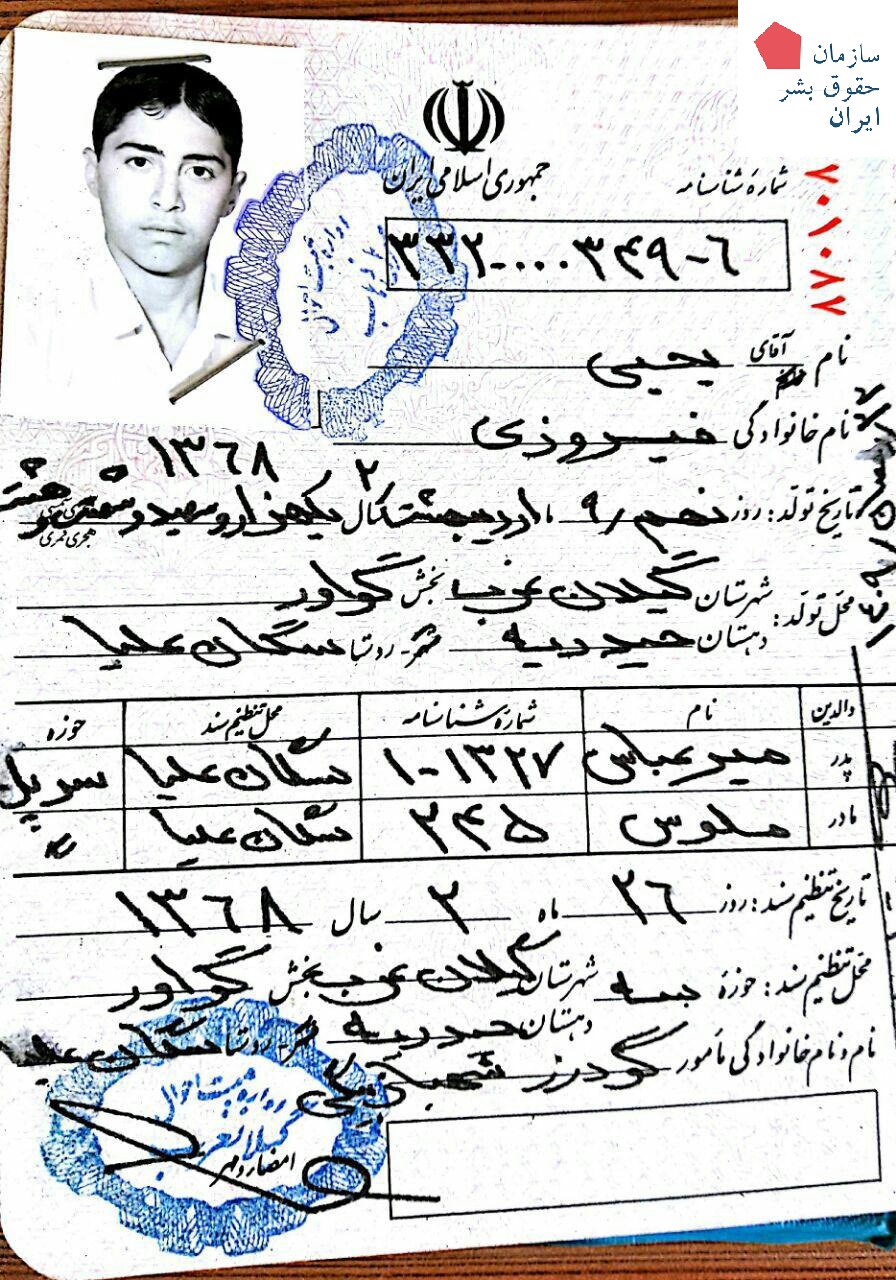 سازمان
حقوق بشر
ایران
جمهوری اسلامی ایران
شمارهٔ شناسنامه
۳۳۲-۰۰۰۳۴۹-۶
۲۰۱۰۸۲
نام آقای یحیی
نام خانوادگی فیروزی
۲ ۱۳۶۸
تاریخ تولد: روز نهم /۹ ماه اردیبهشت سال یکهزار و سیصد و شصت و هشت
هجری قمری
محل تولد: شهرستان گیلان غرب بخش گواور
دهستان حیدریه شهر- روستا سگان علیا
والدین نام شمارهٔ شناسنامه محل تنظیم سند حوزه
پدر میر عباس ۱-۱۳۲۷ سگان علیا سرپل
مادر ملوس ۲۴۵ سگان علیا
تاریخ تنظیم سند: روز ۲۶ ماه ۲ سال ۱۳۶۸
محل تنظیم سند: حوزهٔ سه شهرستان گیلان غرب بخش گواور
دهستان حیدریه شهر- روستا سگان علیا
نام و نام خانوادگی مأمور گودرز
اداره ثبت احوال
گیلانغرب
امضاء و مهر